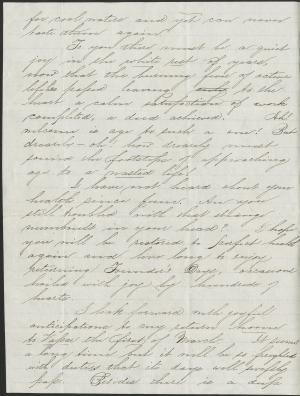 for cool waters and yet can never
taste them again.
To you this must be a quiet
joy in the white rest of years,
now that the burning fire of active
life is passed leaving to the
heart a calm satisfaction of work
completed, a deed achieved. Ah!
welcome is age to such a one! But
drearly - oh how drearly must
sound the footsteps of approaching
age to a wasted life!
I have not heard about your
health since June. Are you
still troubled with that strange
numbness in your head? I hope
you will be restored to perfect health
again and live long to enjoy
returning Founder's Days, occasions
hailed with joy by hundreds of
hearts.
I look forward with joyful
anticipations to my return home
to Vassar the first of March. It seems
a long time but it will be so freighted
with duties that its days will swiftly
pass. Besides there is a deep